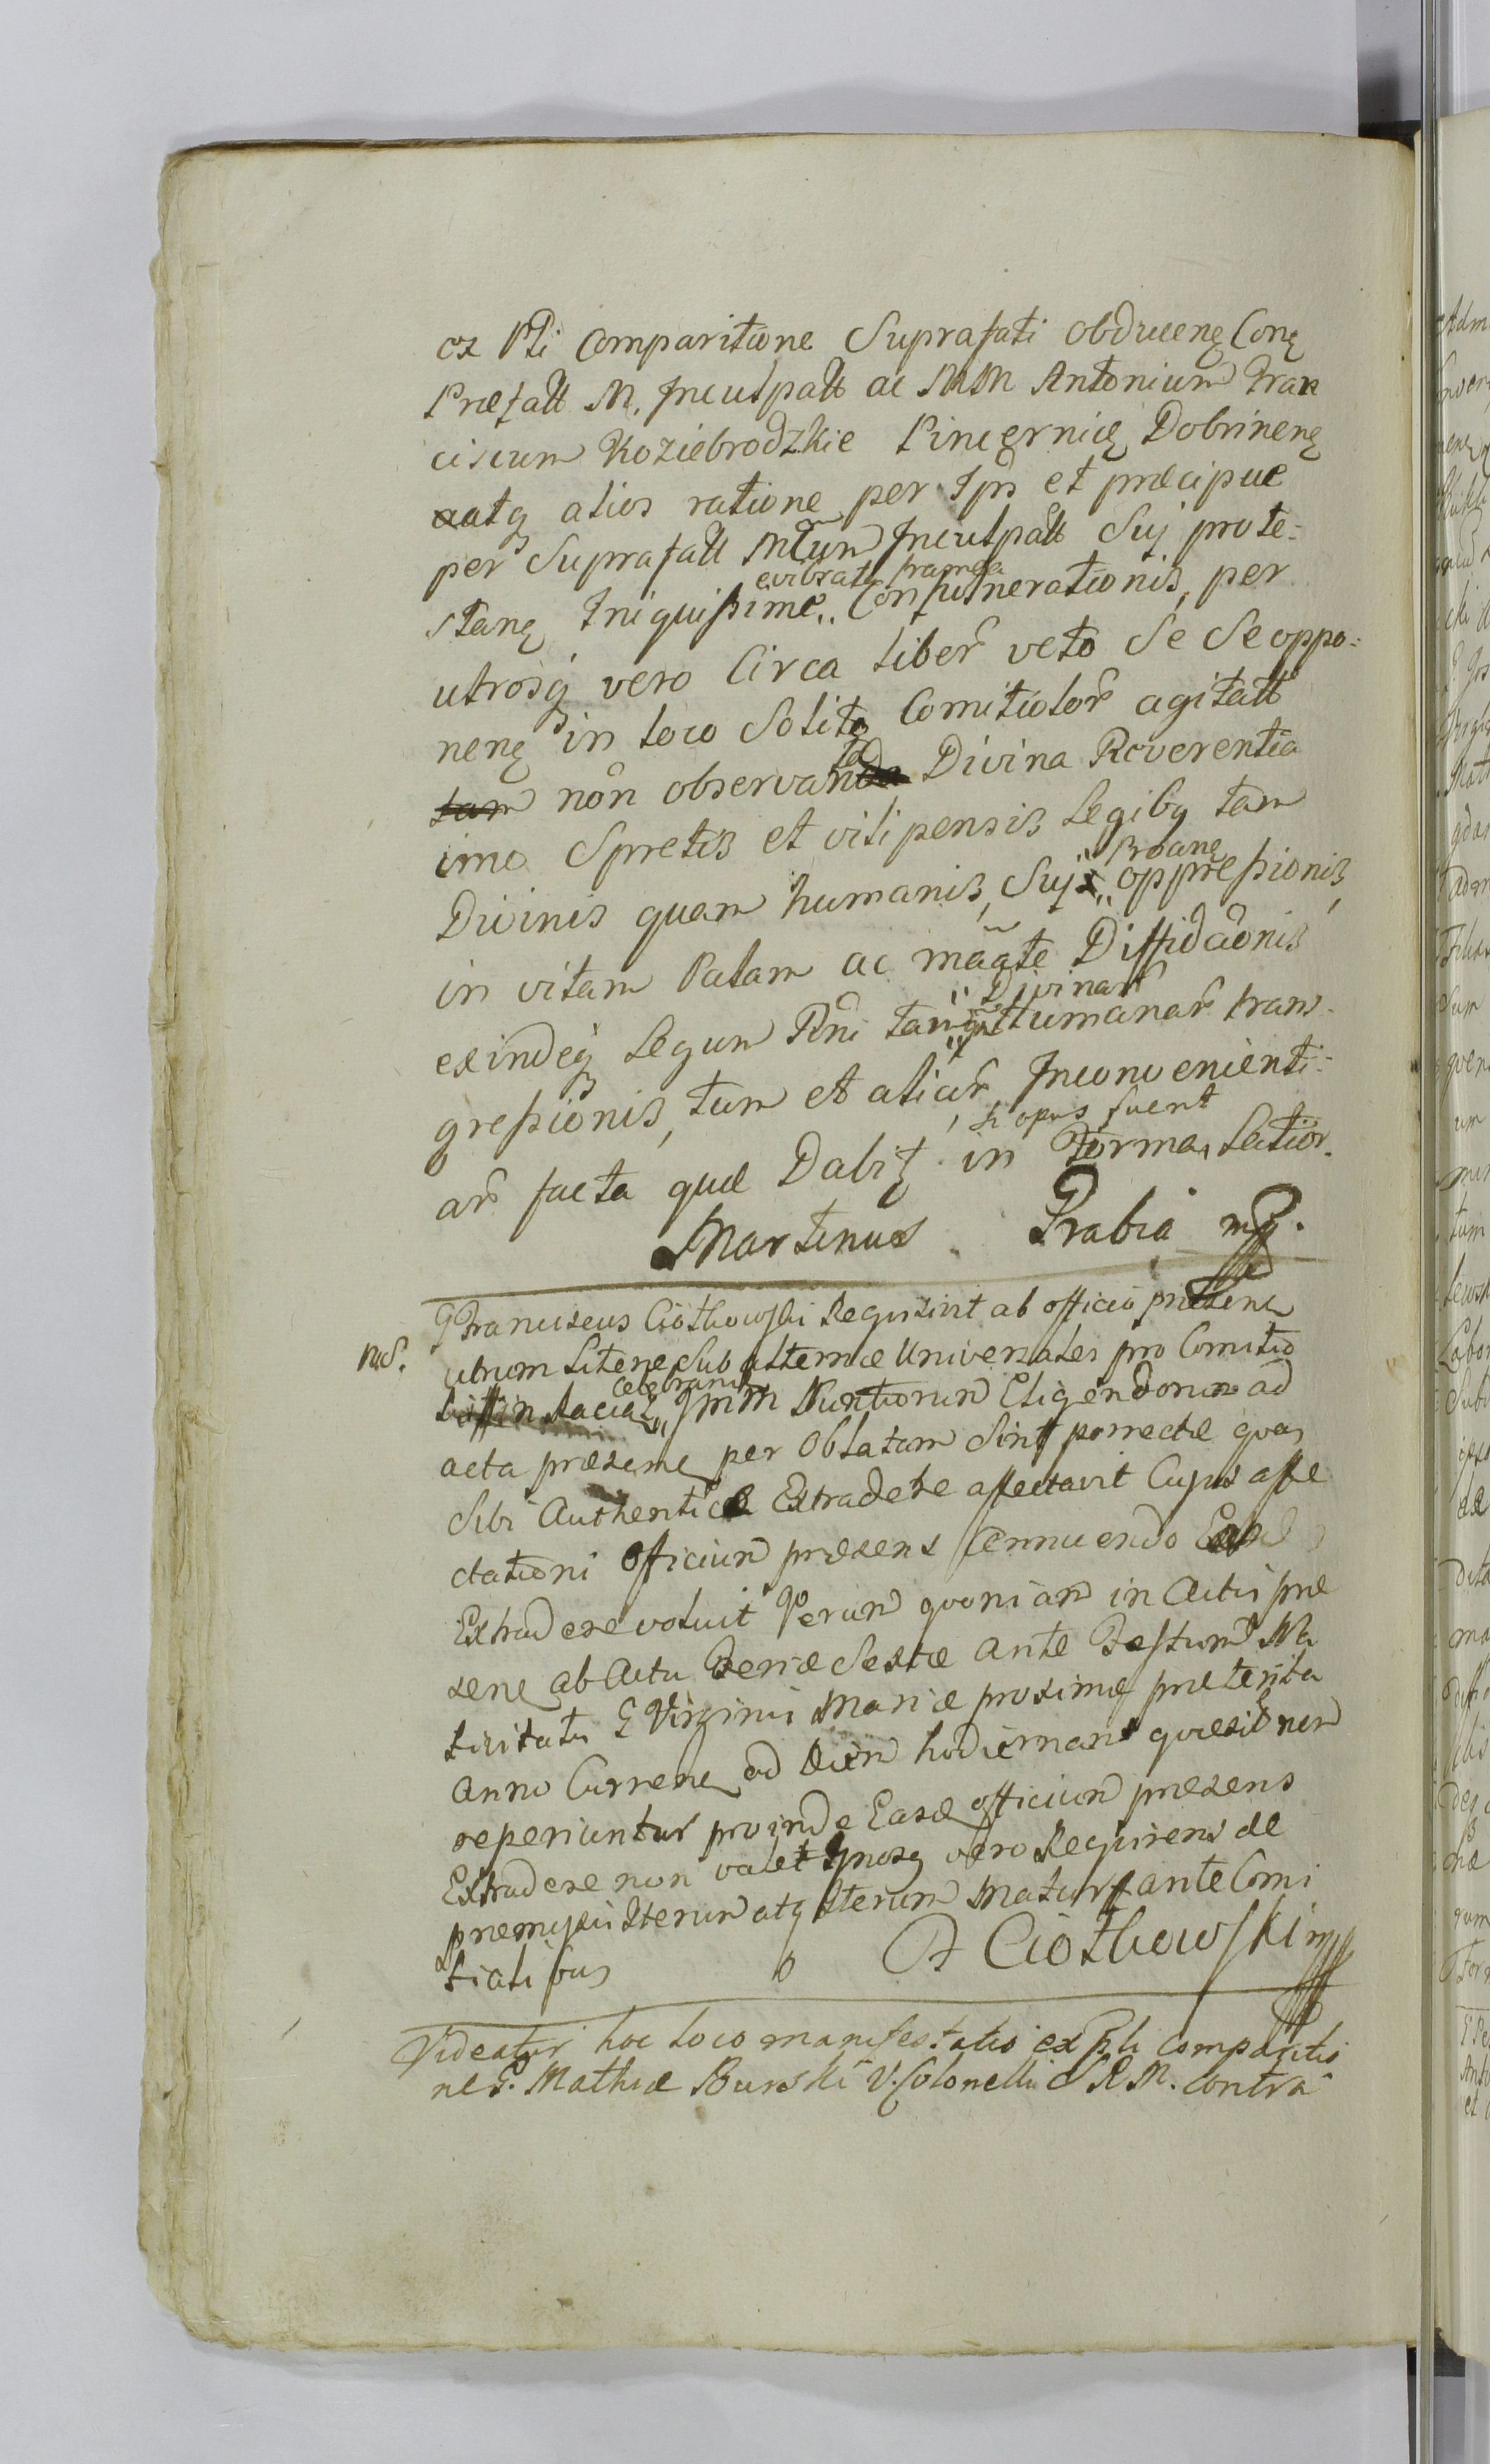 ex Pti Comparitione Suprafati obducenę Conę
Præfatt M. Inculpatt ac MM Antonium Fran
ciscum Koziebrodzkie Pincernię Dobrinenę
atq alios ratione per Ips et præcipue
per Suprafatt Mcum Inculpatt Suj prote-
stanę Iniquissime evibrata framea Convulnerationis, per
utrosq vero Circa liber veto Se Se oppo-
nenę in loco Solito Comitiolor agitatt
tam non observanta Divina Reverentia
imo Spretis et vilipensis Legibq tam
Divinis quam humanis, Suj Proanę oppressionis,
in vitam Palam ac maate Diffidaonis
exindeq Legum Rni tam Divinar qm Humanar trans-
gressionis, tum et aliar Inconvenienti-
ar facta quæ Dabit in Forma, si opus fuerit Latior.
Martinus Grabia mp.
G Franciscus Ciołkowski Requisivit ab officio præsenę
NS.
utrum Literæ Subalternæ Universales pro Comitio
celebrand Imm Nuntiorum Eligendorum ad
acta præsenę per Oblatam Sint porrectæ quas
Sibi Authentice Extradere affectavit Cujus affe
ctationi Officium præsens Annuendo Easd
Extradere voluit Verum quoniam in Actis præ
senę ab Actu Feriæ Sextæ ante Festum Na
tivitatis G Virginis Mariæ proxime præterita
Anno Currenę ad diem hodiernam quæsit non
reperiuntur proinde Eas officium præsens
Extradere non valet Ipnosq vero Requirens de
præmissis Iterum atq Iterum Mature ante Comi
tialibus
F Ciołkowski mp
Videatur hoc loco manifestatio ex Pti Comparitio
ne G. Mathiæ Burski V. Colonelli S R M. contra